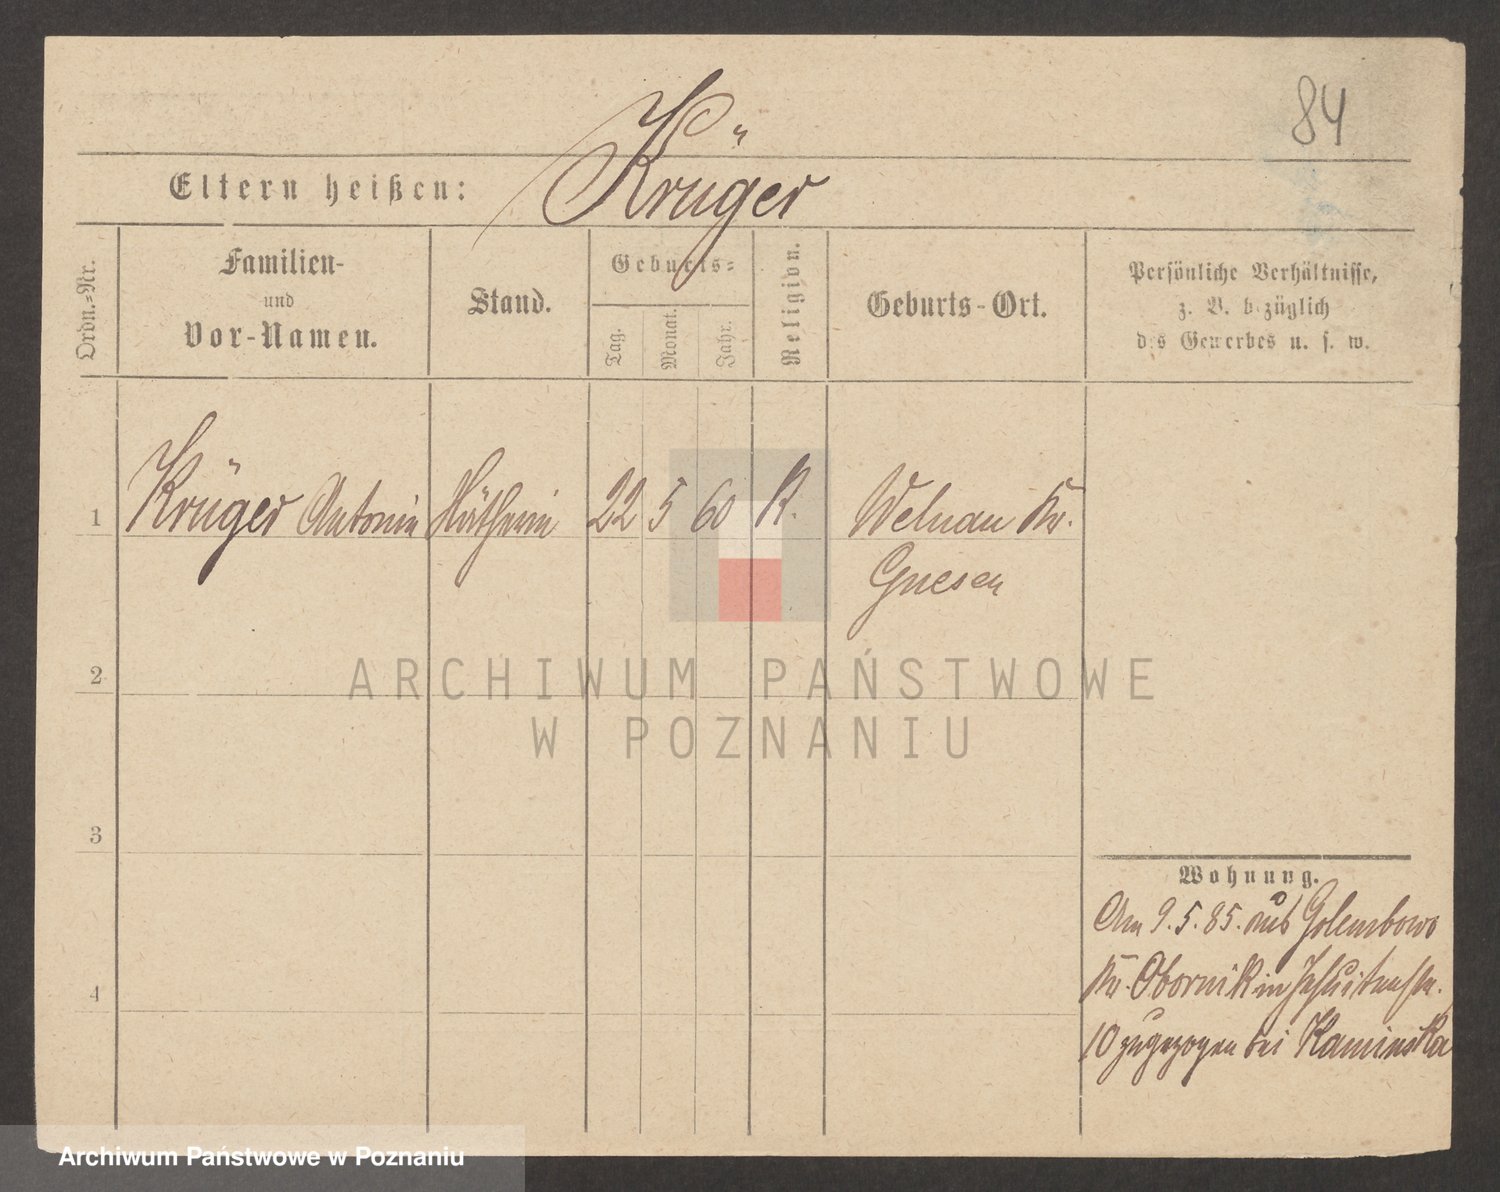 84
Eltern heißen: Krüger
Ordn.=Nr.
Familien-
und
Vor-Namen.
Stand.
Geburts=
Tag.
Monat.
Jahr.
Religion.
Geburts-Ort.
Persönliche Verhältnisse,
z. B. bezüglich
des Gewerbes u. s. w.
1 Krüger Antonie Nätherin 22 5 60 K. Welnau Kr.
Gnesen
2
3
4
Wohnung.
Am 9.5.85. aus Golembowo
Kr. Obornik in Jesuitenstr.
10 zugezogen bei Kaminska
ARCHIWUM PAŃSTWOWE
W POZNANIU
Archiwum Państwowe w Poznaniu